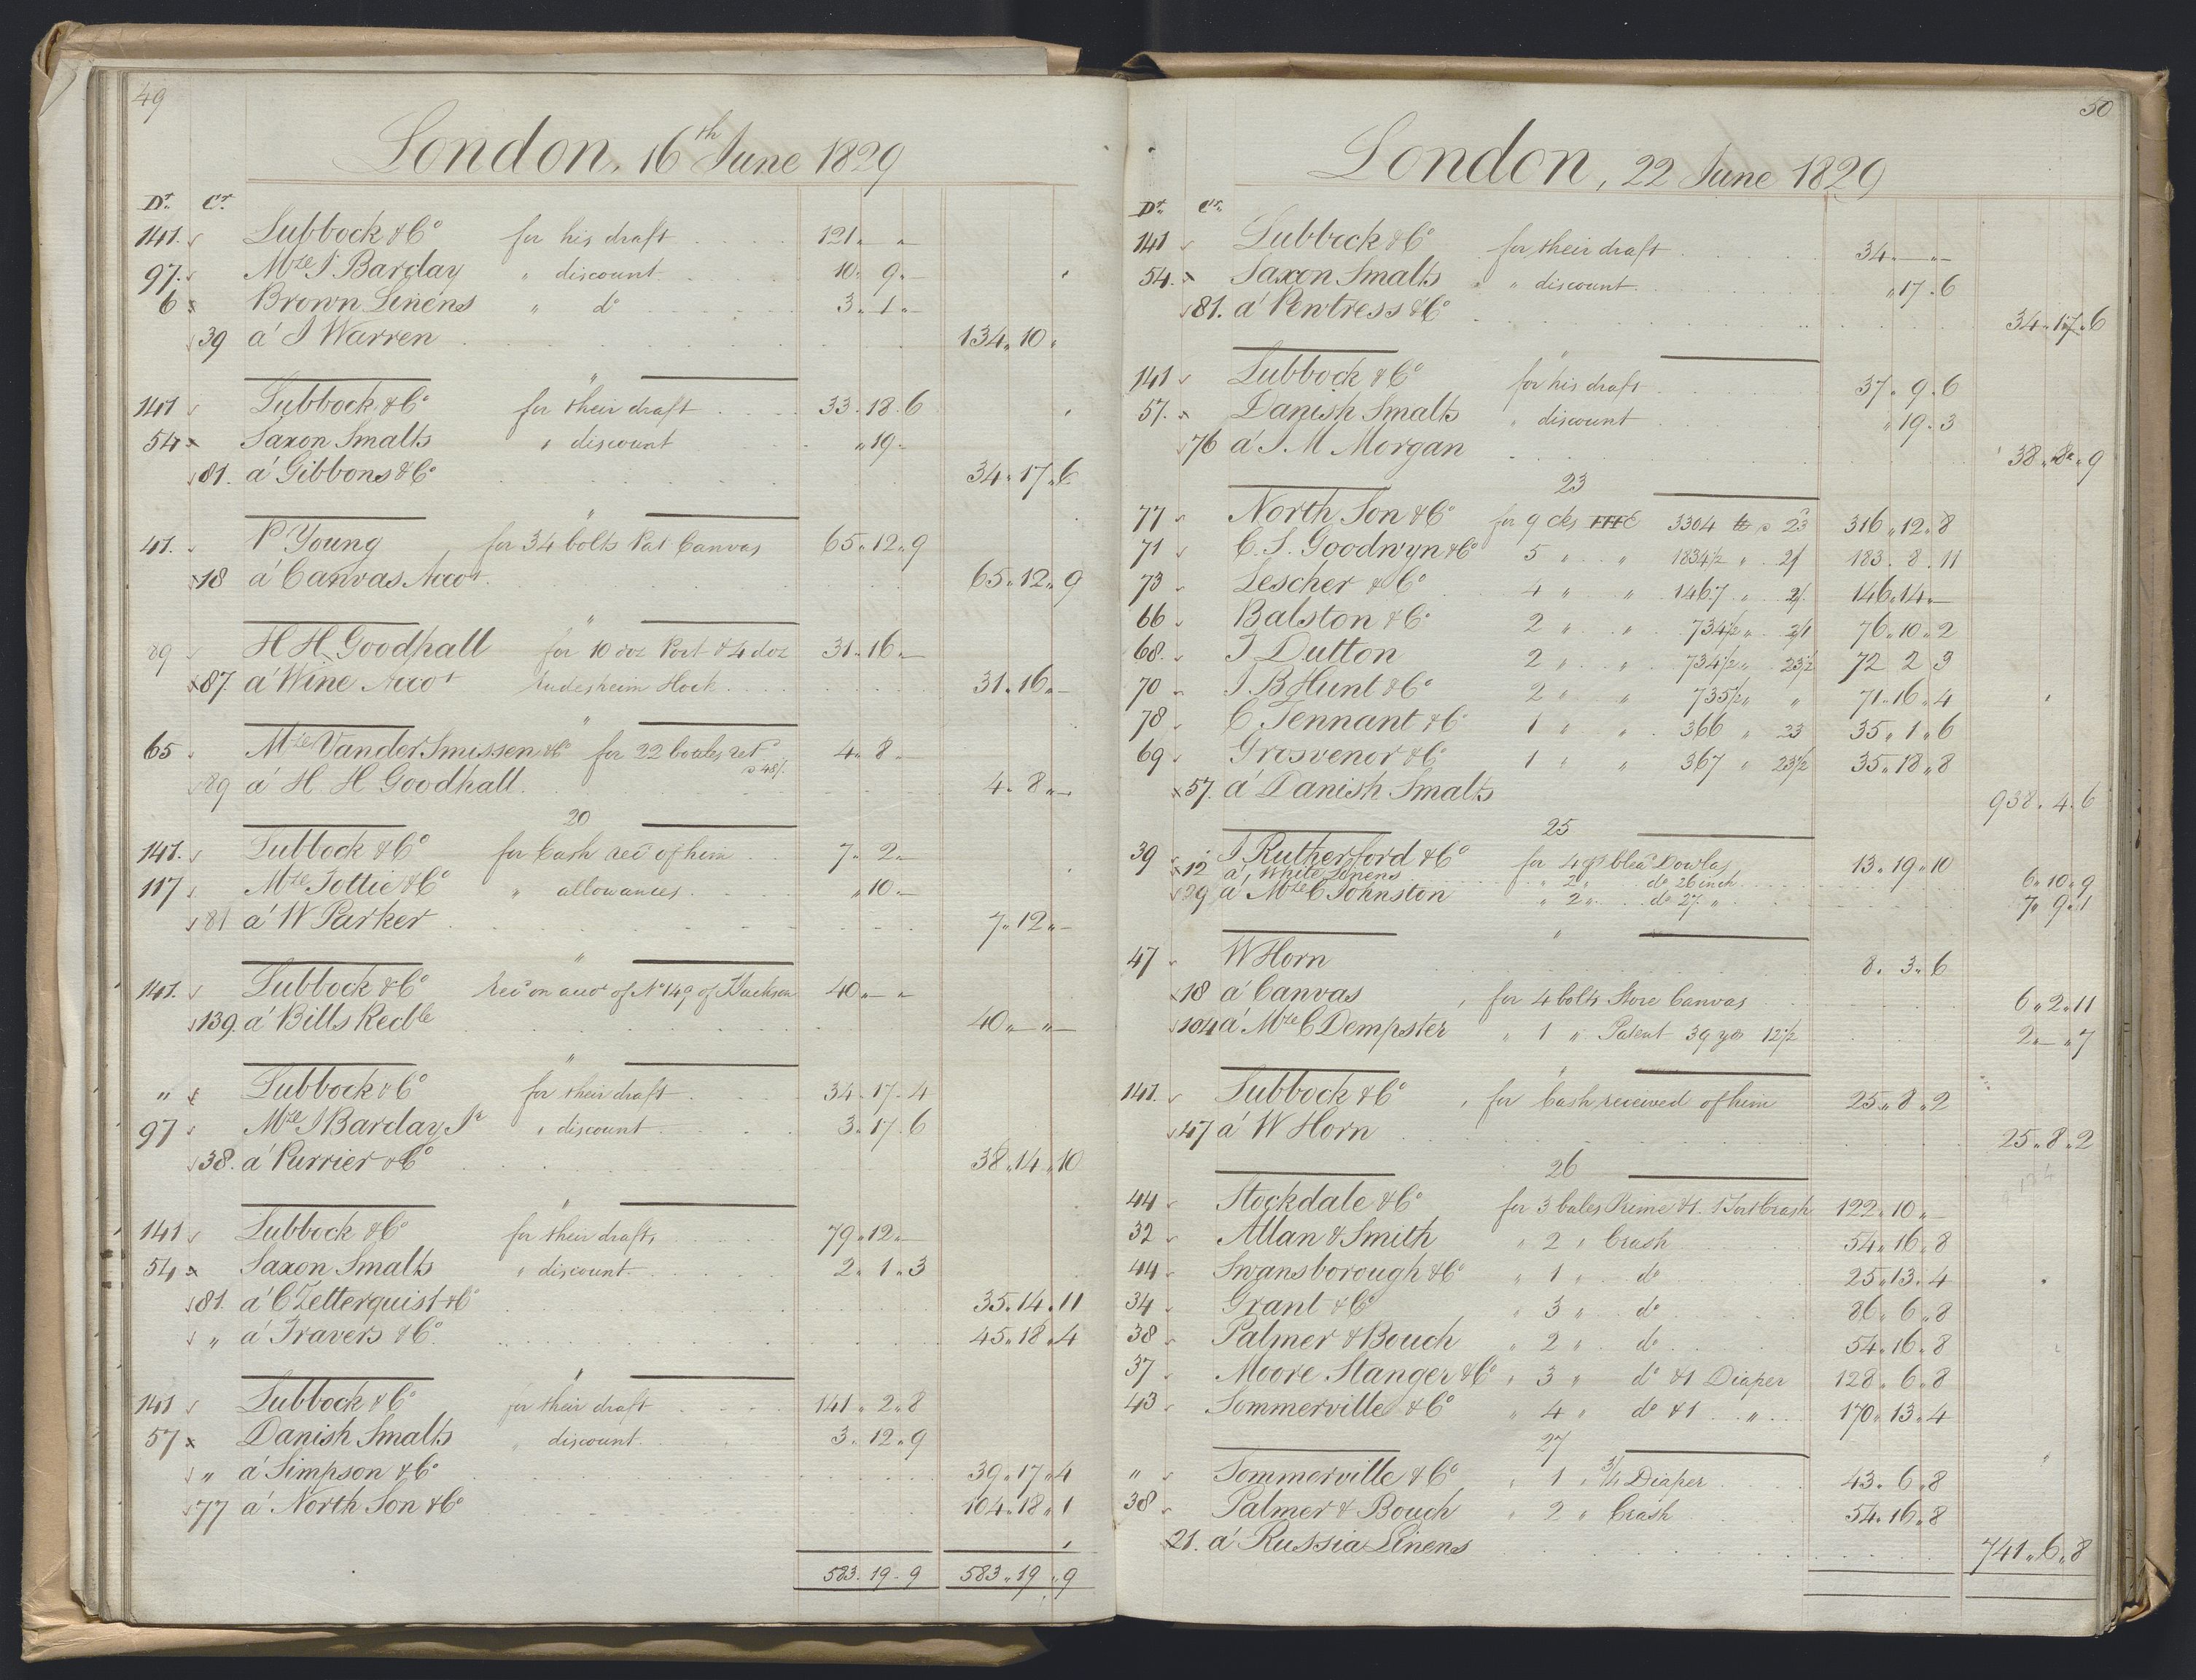 49
London, 16th June 1829
Dr. Cr.
141. Lubbock & Co for his draft 121 „ „
97. Mze J Barclay „ discount 10 „ 9 „ —
6 Brown Linens „ do 3 „ 1 „ —
39 a' J Warren 134 „ 10 „
„
141 Lubbock & Co for their draft 33 . 18 . 6
54 Saxon Smalts „ discount „ 19 -
81. a' Gibbons & Co 34 „ 17 „ 6
„
41. P Young for 34 bolts Pat Canvas 65 „ 12 „ 9
18 a' Canvas Accot. 65 „ 12 „ 9
„
89 H H Goodhall for 10 doz Port & 4 doz 31 „ 16 „ —
87. a' Wine Accot Rudesheim Hock 31 „ 16 „ —
„
65 Mze Vander Smissen & Co for 22 bottles retd 4 „ 8 „ —
@ 48/.
89 a' H H Goodhall. 4 „ 8 „ —
20
141. Lubbock & Co for Cash recd of him 7 „ 2 „ —
117 Mze Tottie & Co „ allowances „ 10 „ —
81 a' W Parker 7 „ 12 „ —
„
141. Lubbock & Co Recd on accot of No 149 of Jackson 40 „ — „
139. a' Bills Recble 40 „ — „ —
„
„ Lubbock & Co for their draft 34 . 17 . 4
97 Mze J Barclay Jr „ discount 3 „ 17 . 6
38. a' Purrier & Co 38 „ 14 „ 10
„
141 Lubbock & Co for their draft, 79 „ 12 „ —
54 Saxon Smalts „ discount 2 „ 1 „ 3
81. a' C Zetterquist & Co 35 „ 14 „ 11
„ a' Travers & Co. 45 „ 18 „ 4
„
141 Lubbock & Co for their draft 141 „ 2 „ 8
57 Danish Smalts „ discount 3 „ 12 „ 9
„ a' Simpson & Co 39 „ 17 „ 4
77 a' North Son & Co 104 „ 18 „ 1
583 . 19 - 9 583 „ 19 „ 9
50
London, 22 June 1829
Dr. Cr.
141 Lubbock & Co for their draft 34 „ — „ —
54. Saxon Smalts „ discount „ 17 . 6
81. a' Pentress & Co 34 „ 17 „ 6
„
141 Lubbock & Co for his draft 37 „ 9 „ 6
57. Danish Smalts „ discount „ 19 . 3
76 a' J M Morgan 38 „ 8 „ 9
23
77 North Son & Co for 9 cks FFFC 3304 lb @ 23 316 „ 12 „ 8
71 C. S. Goodwyn & Co 5 „ „ 1834½ „ 2/ 183 . 8 . 11
73 Lescher & Co 4 „ „ 1467 „ 2/. 146 „ 14 „ —
66 Balston & Co 2 „ „ 734½ „ 2/1 76 „ 10 „ 2
68. J Dutton 2 „ „ 734½ „ 23½ 72 2 3
70 J B Hunt & Co 2 „ „ 735½ „ „ 71 „ 16 „ 4
78 C Tennant & Co 1 „ „ 366 „ 23 35 „ 1 „ 6
69 Grosvenor & Co 1 „ „ 367 „ 23½ 35 „ 18 „ 8
57. a' Danish Smalts 938 „ 4 „ 6
25
39 J Rutherford & Co for 4 ps blead Dowlas 13 „ 19 „ 10
12 a' White Linens „ 2 „ do 26 inch 6 „ 10 „ 9
29 a' Mze C Johnston „ 2 „ do 27 „ 7 „ 9 „ 1
„
47 W Horn 8 . 3 „ 6
18 a' Canvas „ for 4 bolts Store Canvas 6 „ 2 „ 11
104 a' Mze C Dempster „ 1 „ Patent 39 yds 12½ 2 „ — „ 7
„
141. Lubbock & Co „ for Cash received of him 25 „ 8 „ 2
47 a' W Horn 25 „ 8 „ 2
26
44 Stockdale & Co for 3 bales Prime & 1. 1 Sort Crash 122 „ 10 „ —
32 Allan & Smith „ 2 „ Crash 54 „ 16 „ 8
44 Swansborough & Co „ 1 „ do 25 „ 13 „ 4
34 Grant & Co „ 3 „ do 86 „ 6 „ 8
38 Palmer & Bouch „ 2 „ do 54 „ 16 „ 8
37 Moore Stanger & Co „ 3 „ do & 1 Diaper 128 „ 6 „ 8
43 Sommerville & Co „ 4 „ do & 1 „ 170 „ 13 „ 4
27
„ Sommerville & Co „ 1 „ ¾ Diaper 43 . 6 „ 8
38 Palmer & Bouch „ 2 „ Crash 54 „ 16 „ 8
21. a' Russia Linens 741 „ 6 „ 8